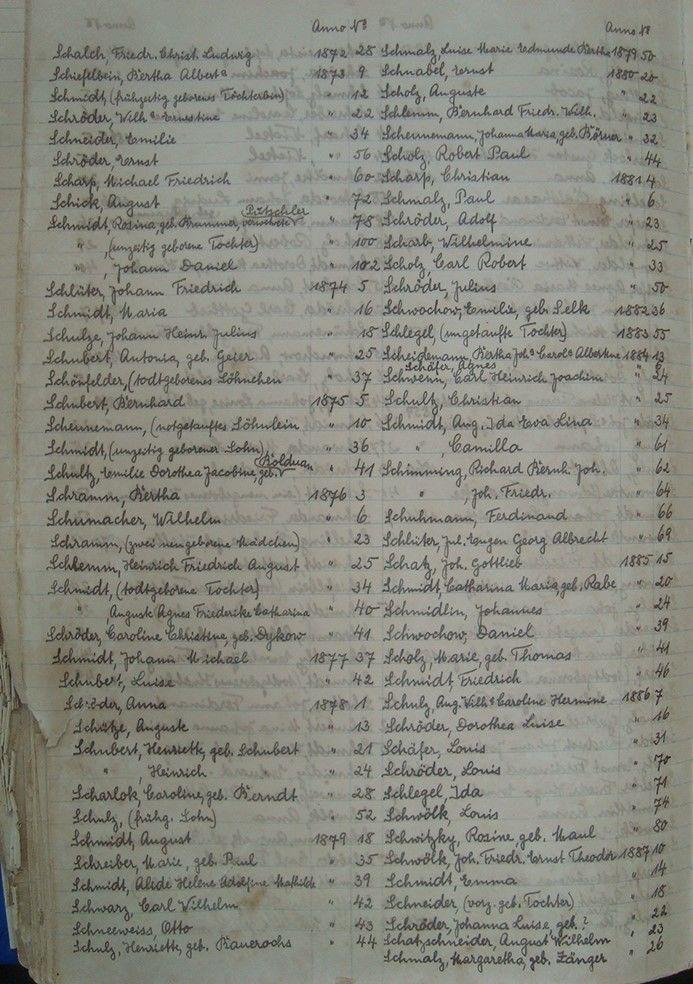 Anno No
Schalch, Friedr. Christ. Ludwig 1872 28
Schiefelbein, Bertha Alberta 1873 9
Schmidt, (frühzeitig geborenes Töchterlein) " 12
Schröder, Wilh. Ernestine " 22
Schneider, Emilie " 34
Schröder, Ernst " 56
Scharp, Michael Friedrich " 60
Schick, August " 72
Schmidt, Rosina geb. Krummer, verwitwete Pötschler " 78
" , (unzeitig geborene Tochter) " 100
" , Johann Daniel " 102
Schlüter, Johann Friedrich 1874 5
Schmidt, Maria " 16
Schulze, Johann Heinr. Julius " 18
Schubert, Antonia, geb. Geier " 25
Schönfelder, (todtgeborenes Söhnchen " 37
Schubert, Bernhard 1875 5
Schernemann, (notgetauftes Söhnlein " 10
Schmidt, (unzeitig geborener Sohn) " 36
Schultz, Emilie Dorothea Jacobine, geb. Bolduan " 41
Schramm, Bertha 1876 3
Schumacher, Wilhelm " 6
Schramm, (zwei neugeborene Mädchen) " 23
Schlemm, Heinrich Friedrich August " 25
Schmidt, (todtgeborene Tochter) " 34
" , August Agnes Friederike Catharina " 40
Schröder, Caroline Christine, geb. Dykow " 41
Schmidt, Johann Michael 1877 37
Schubert, Luise " 42
Schröder, Anna 1878 1
Schütze, Auguste " 13
Schubert, Henriette, geb. Schubert " 21
" , Heinrich " 24
Scharlok, Caroline, geb. Berndt " 28
Schulz, (frühg. Sohn) " 52
Schmidt, August 1879 18
Schreiber, Marie, geb. Paul " 35
Schmidt, Alide Helene Adolfine Mathilde " 39
Schwarz, Carl Wilhelm " 42
Schneeweiss, Otto " 43
Schulz, Henriette, geb. " 44
Anno No
Schmalz, Luise Marie Redmunde Bertha 1879 50
Schnabel, Ernst 1880 20
Scholz, Auguste " 22
Schlemm, Bernhard Friedr. Wilh. " 23
Schernemann, Johanna Maria, geb. Börner " 32
Scholz, Robert Paul " 44
Scharp, Christian 1881 4
Schmalz, Paul " 6
Schröder, Adolf " 23
Scharb, Wilhelmine " 25
Scholz, Carl Robert " 33
Schröder, Julius " 50
Schwochow, Emilie, geb. Selk 1882 36
Schlegel, (ungetaufte Tochter) 1883 55
Scheidemann, Bertha Joh. Carol. Albertine 1884 13
Schäfer, Agnes
Schwenn, Carl Heinrich Joachim " 24
Schultz, Christian " 25
Schmidt, Aug. Ida Eva Lina " 34
" , Camilla " 61
Schimming, Richard Bernh. Joh. " 62
" , Joh. Friedr. " 64
Schuhmann, Ferdinand " 66
Schlüter, Jul. Eugen Georg Albrecht " 69
Schatz, Joh. Gottlieb 1885 15
Schmidt, Catharina Maria, geb. Rabe " 20
Schmidlin, Johannes " 24
Schwochow, Daniel " 39
Scholz, Marie, geb. Thomas " 41
Schmidt Friedrich " 46
Schulz, Aug. Wilh. Caroline Hermine 1886 7
Schröder, Dorothea Luise " 16
Schäfer, Louis " 31
Schröder, Louis " 70
Schlegel, Ida " 71
Schwölk, Louis " 74
Schwitzky, Rosine, geb. Maul " 80
Schwölk, Joh. Friedr. Ernst Theodor 1887 10
Schmidt, Emma " 14
Schneider, (vorz. geb. Tochter) " 18
Schröder, Johanna Luise, geb. ? " 22
Schatzschneider, August Wilhelm " 23
Schmalz, Margaretha, geb. Zänger " 26